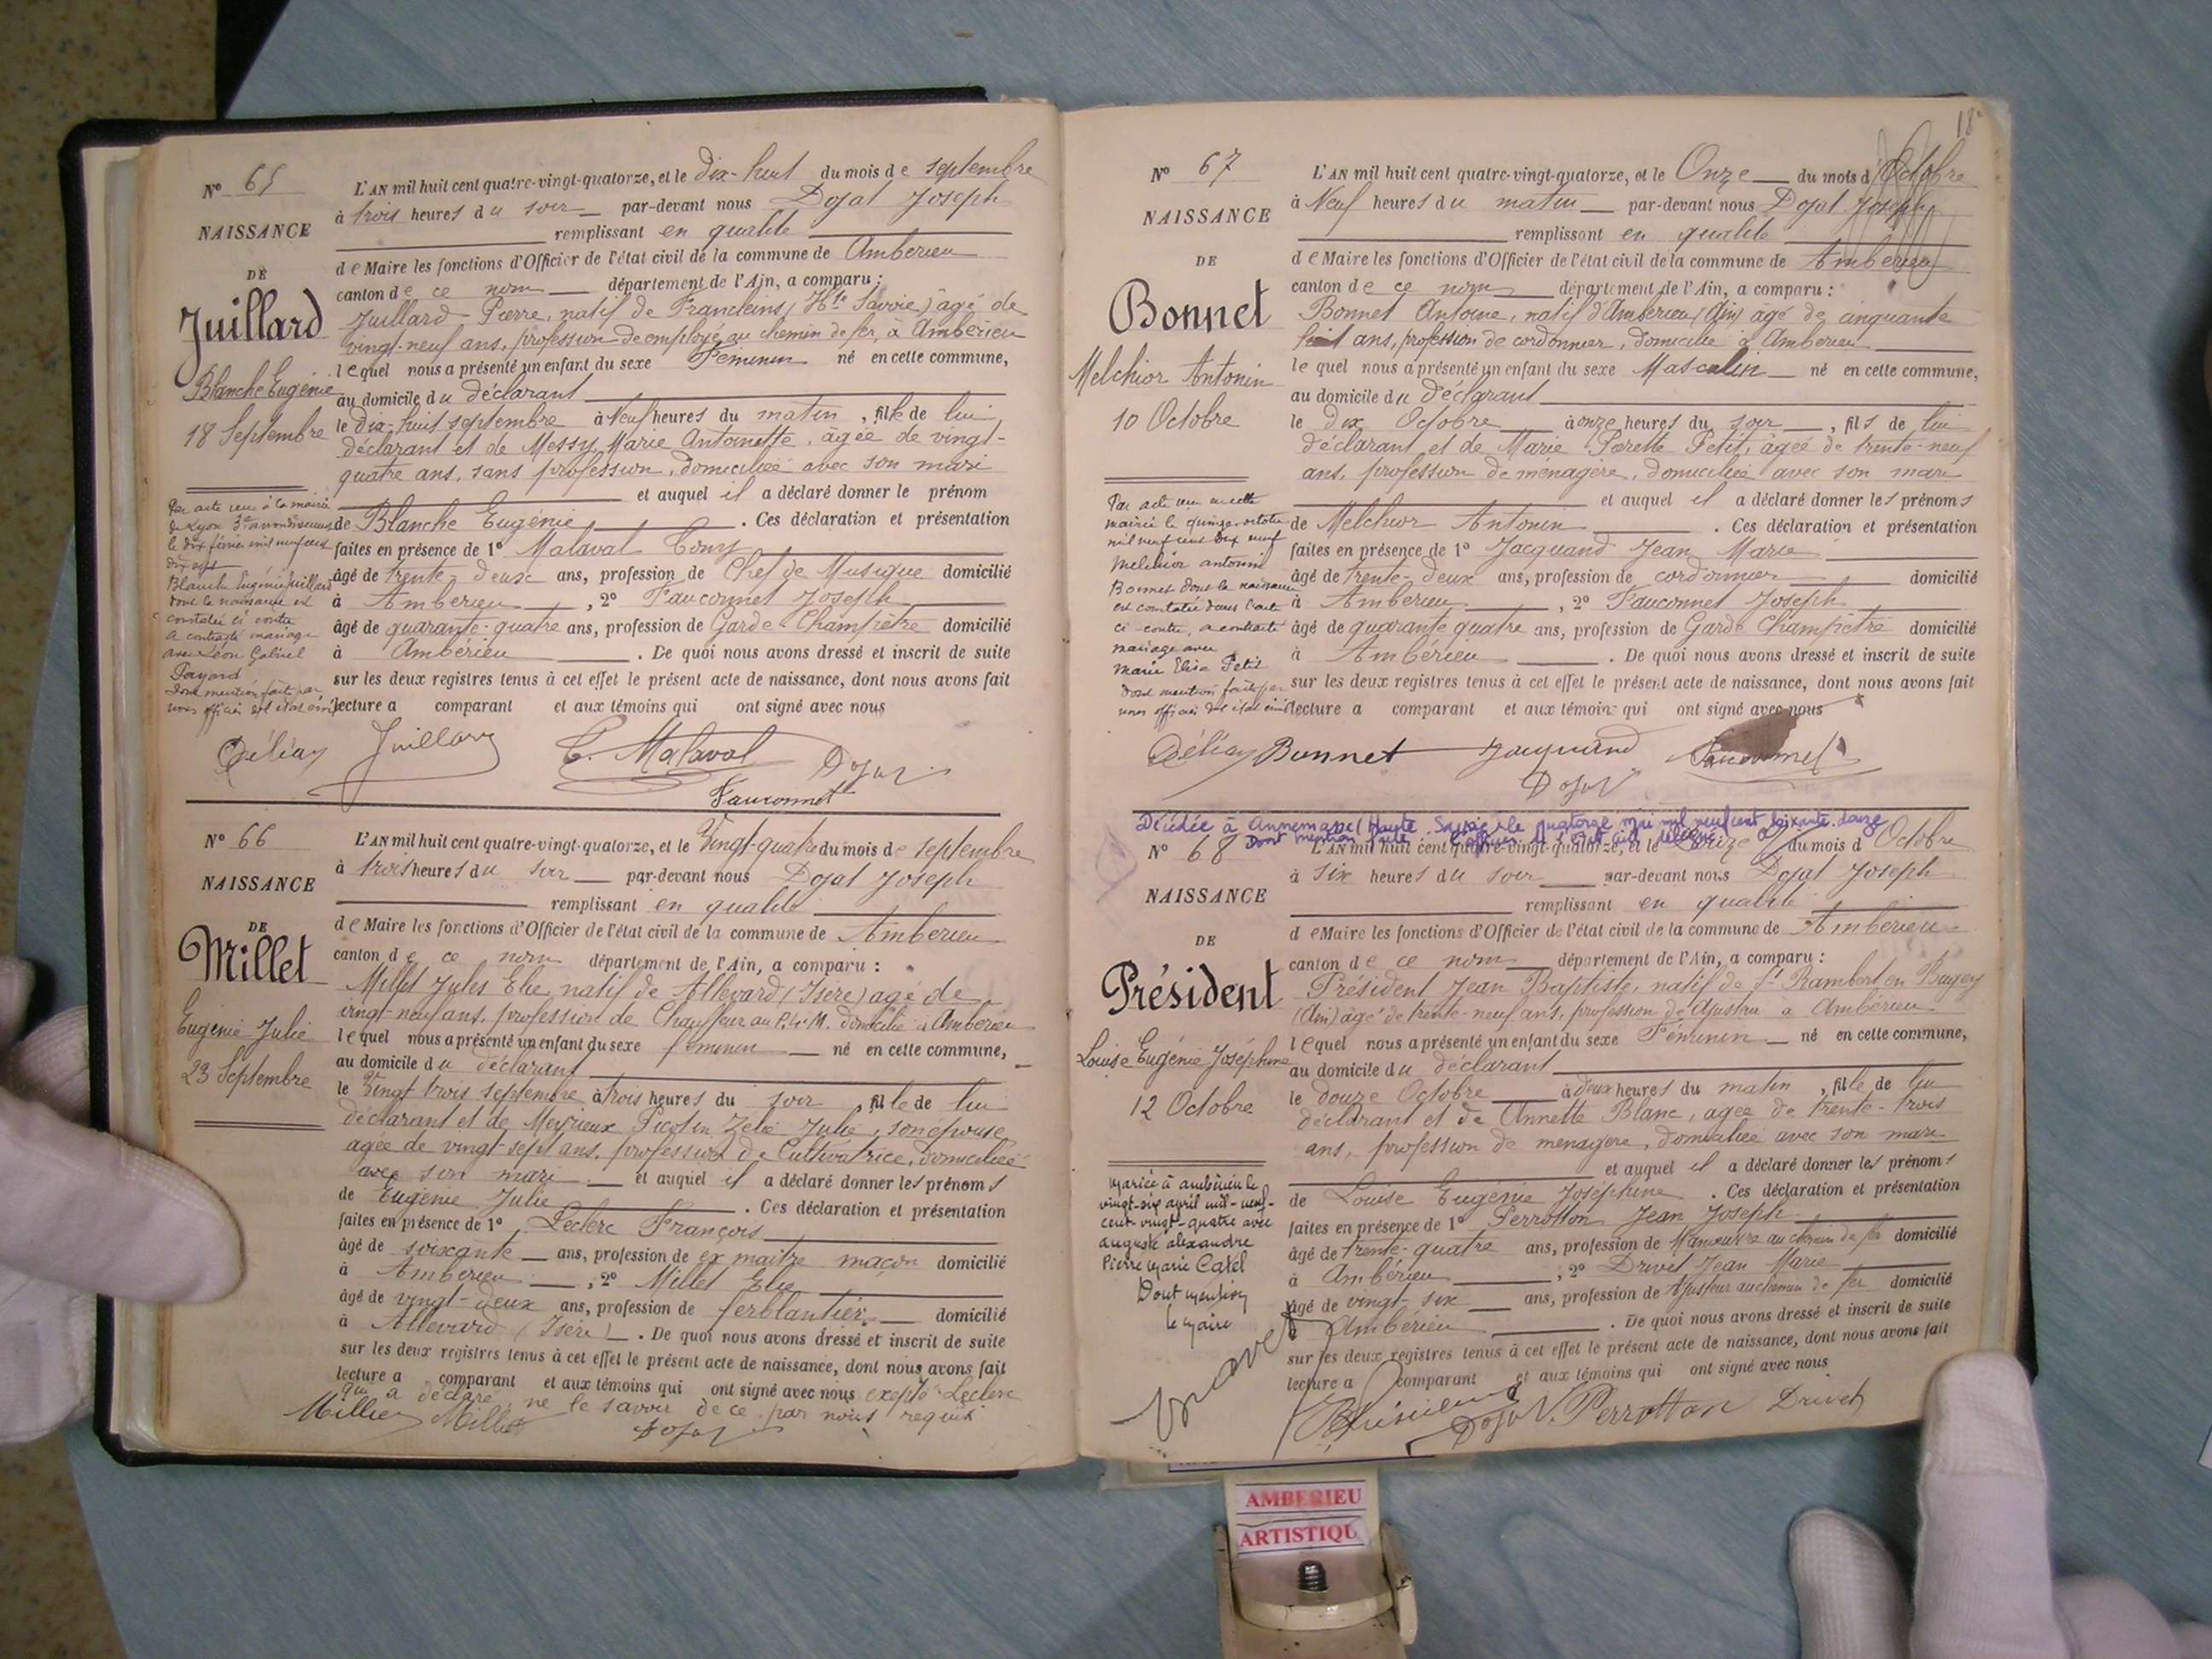 Nº 65
NAISSANCE
DE
Juillard
Blanche Eugénie
18 Septembre
Par acte reçu à la mairie
de Lyon 3e arrondissement
le dix février mil neuf cent
dix sept
Blanche Eugénie Juillard
dont la naissance est
constatée ci contre
a contracté mariage
avec Léon Gabriel
Fayard
dont mention faite par
nous officier de l'état civil
L'AN mil huit cent quatre-vingt-quatorze, et le Dix-huit du mois de septembre
à trois heures du soir par-devant nous Dojat Joseph
remplissant en qualité
de Maire les fonctions d'Officier de l'état civil de la commune de Amberieu
canton de ce nom département de l'Ain, a comparu :
Juillard Pierre, natif de Francleins (Hte Savoie) âgé de
vingt-neuf ans, profession de employé au chemin de fer, à Ambérieu
lequel nous a présenté un enfant du sexe Feminin né en cette commune,
au domicile du déclarant
le Dix-huit septembre à Neuf heures du matin, fille de lui
déclarant et de Messy Marie Antoinette, âgée de vingt-
quatre ans, sans profession, domiciliée avec son mari
et auquel il a déclaré donner le prénom
de Blanche Eugénie. Ces déclaration et présentation
faites en présence de 1º Malaval Tony
âgé de trente deux ans, profession de Chef de Musique domicilié
à Ambérieu, 2º Fauconnet Joseph
âgé de quarante-quatre ans, profession de Garde Champêtre domicilié
à Ambérieu. De quoi nous avons dressé et inscrit de suite
sur les deux registres tenus à cet effet le présent acte de naissance, dont nous avons fait
lecture a comparant et aux témoins qui ont signé avec nous
Juillard C. Malaval Dojat
Fauconnet
Nº 66
NAISSANCE
DE
Millet
Eugénie Julie
23 Septembre
L'AN mil huit cent quatre-vingt-quatorze, et le Vingt-quatre du mois de septembre
à trois heures du soir par-devant nous Dojat Joseph
remplissant en qualité
de Maire les fonctions d'Officier de l'état civil de la commune de Ambérieu
canton de ce nom département de l'Ain, a comparu :
Millet Jules Elie, natif de Allevard (Isère) agé de
vingt-neuf ans, profession de Chauffeur au P.L.M. domicilié à Ambérieu
lequel nous a présenté un enfant du sexe féminin né en cette commune,
au domicile du déclarant
le Vingt trois septembre à trois heures du soir fille de lui
déclarant et de Meyrieux Picotin Zelie Julie, son épouse
agée de vingt-sept ans, profession de Cultivatrice, domiciliée
avec son mari et auquel il a déclaré donner les prénoms
de Eugénie Julie. Ces déclaration et présentation
faites en présence de 1º Leclerc François
âgé de soixante ans, profession de ex maitre maçon domicilié
à Ambérieu, 2º Millet Elie
âgé de vingt-deux ans, profession de ferblantier domicilié
à Allevard (Isère). De quoi nous avons dressé et inscrit de suite
sur les deux registres tenus à cet effet le présent acte de naissance, dont nous avons fait
lecture a comparant et aux témoins qui ont signé avec nous excepté Leclerc
qui a déclaré ne le savoir de ce par nous requis
Millet Millet Dojat
18
Nº 67
NAISSANCE
DE
Bonnet
Melchior Antonin
10 Octobre
Par acte reçu en cette
mairie le quinze octobre
mil neuf cent dix neuf
Melchior antonin
Bonnet dont la naissance
est constatée dans l'acte
ci contre, a contracté
mariage avec
Marie Elise Petit
dont mention faite par
nous officier de l'état civil
L'AN mil huit cent quatre-vingt-quatorze, et le Onze du mois d'Octobre
à Neuf heures du matin par-devant nous Dojat Joseph
remplissant en qualité
de Maire les fonctions d'Officier de l'état civil de la commune de Ambérieu
canton de ce nom département de l'Ain, a comparu :
Bonnet Antoine, natif d'Ambérieu (Ain) âgé de cinquante
ans, profession de cordonnier, domicilié à Amberieu
lequel nous a présenté un enfant du sexe Masculin né en cette commune,
au domicile du déclarant
le dix Octobre à onze heures du soir, fils de lui
déclarant et de Marie Pierrette Petit, âgée de trente-neuf
ans, profession de ménagère, domiciliée avec son mari
et auquel il a déclaré donner les prénoms
de Melchior Antonin. Ces déclaration et présentation
faites en présence de 1º Jacquand Jean Marie
âgé de trente-deux ans, profession de cordonnier domicilié
à Ambérieu, 2º Fauconnet Joseph
âgé de quarante quatre ans, profession de Garde Champêtre domicilié
à Ambérieu. De quoi nous avons dressé et inscrit de suite
sur les deux registres tenus à cet effet le présent acte de naissance, dont nous avons fait
lecture a comparant et aux témoins qui ont signé avec nous
Bonnet Jacquand Fauconnet
Dojat
Décédée à Annemasse (Haute Savoie) le quatorze mai mil neuf cent soixante-douze
Dont mention faite. L'officier de l'état civil délégué
Nº 68
NAISSANCE
DE
Président
Louise Eugénie Joséphine
12 Octobre
Mariée à ambérieu le
vingt-six avril mil-neuf-
cent-vingt-quatre avec
auguste alexandre
Pierre Marie Catel
Dont mention
le maire
L'AN mil huit cent quatre-vingt-quatorze, et le Douze du mois d Octobre
à six heures du soir par-devant nous Dojat Joseph
remplissant en qualité
de Maire les fonctions d'Officier de l'état civil de la commune de Ambérieu
canton de ce nom département de l'Ain, a comparu :
Président Jean Baptiste, natif de St Rambert en Bugey
(Ain) âgé de trente-neuf ans, profession de Ajusteur à Ambérieu
lequel nous a présenté un enfant du sexe Féminin né en cette commune,
au domicile du déclarant
le douze Octobre à deux heures du matin, fille de lui
déclarant et de Annette Blanc, agée de trente-trois
ans, profession de menagere, domiciliée avec son mari
et auquel il a déclaré donner les prénoms
de Louise Eugénie Joséphine. Ces déclaration et présentation
faites en présence de 1º Perrotton Jean Joseph
âgé de trente-quatre ans, profession de Manœuvre au chemin de fer domicilié
à Ambérieu, 2º Drivet Jean Marie
âgé de vingt six ans, profession de Ajusteur au chemin de fer domicilié
à Ambérieu. De quoi nous avons dressé et inscrit de suite
sur les deux registres tenus à cet effet le présent acte de naissance, dont nous avons fait
lecture a comparant et aux témoins qui ont signé avec nous
Président Dojat Perrotton Drivet
AMBERIEU
ARTISTIQU